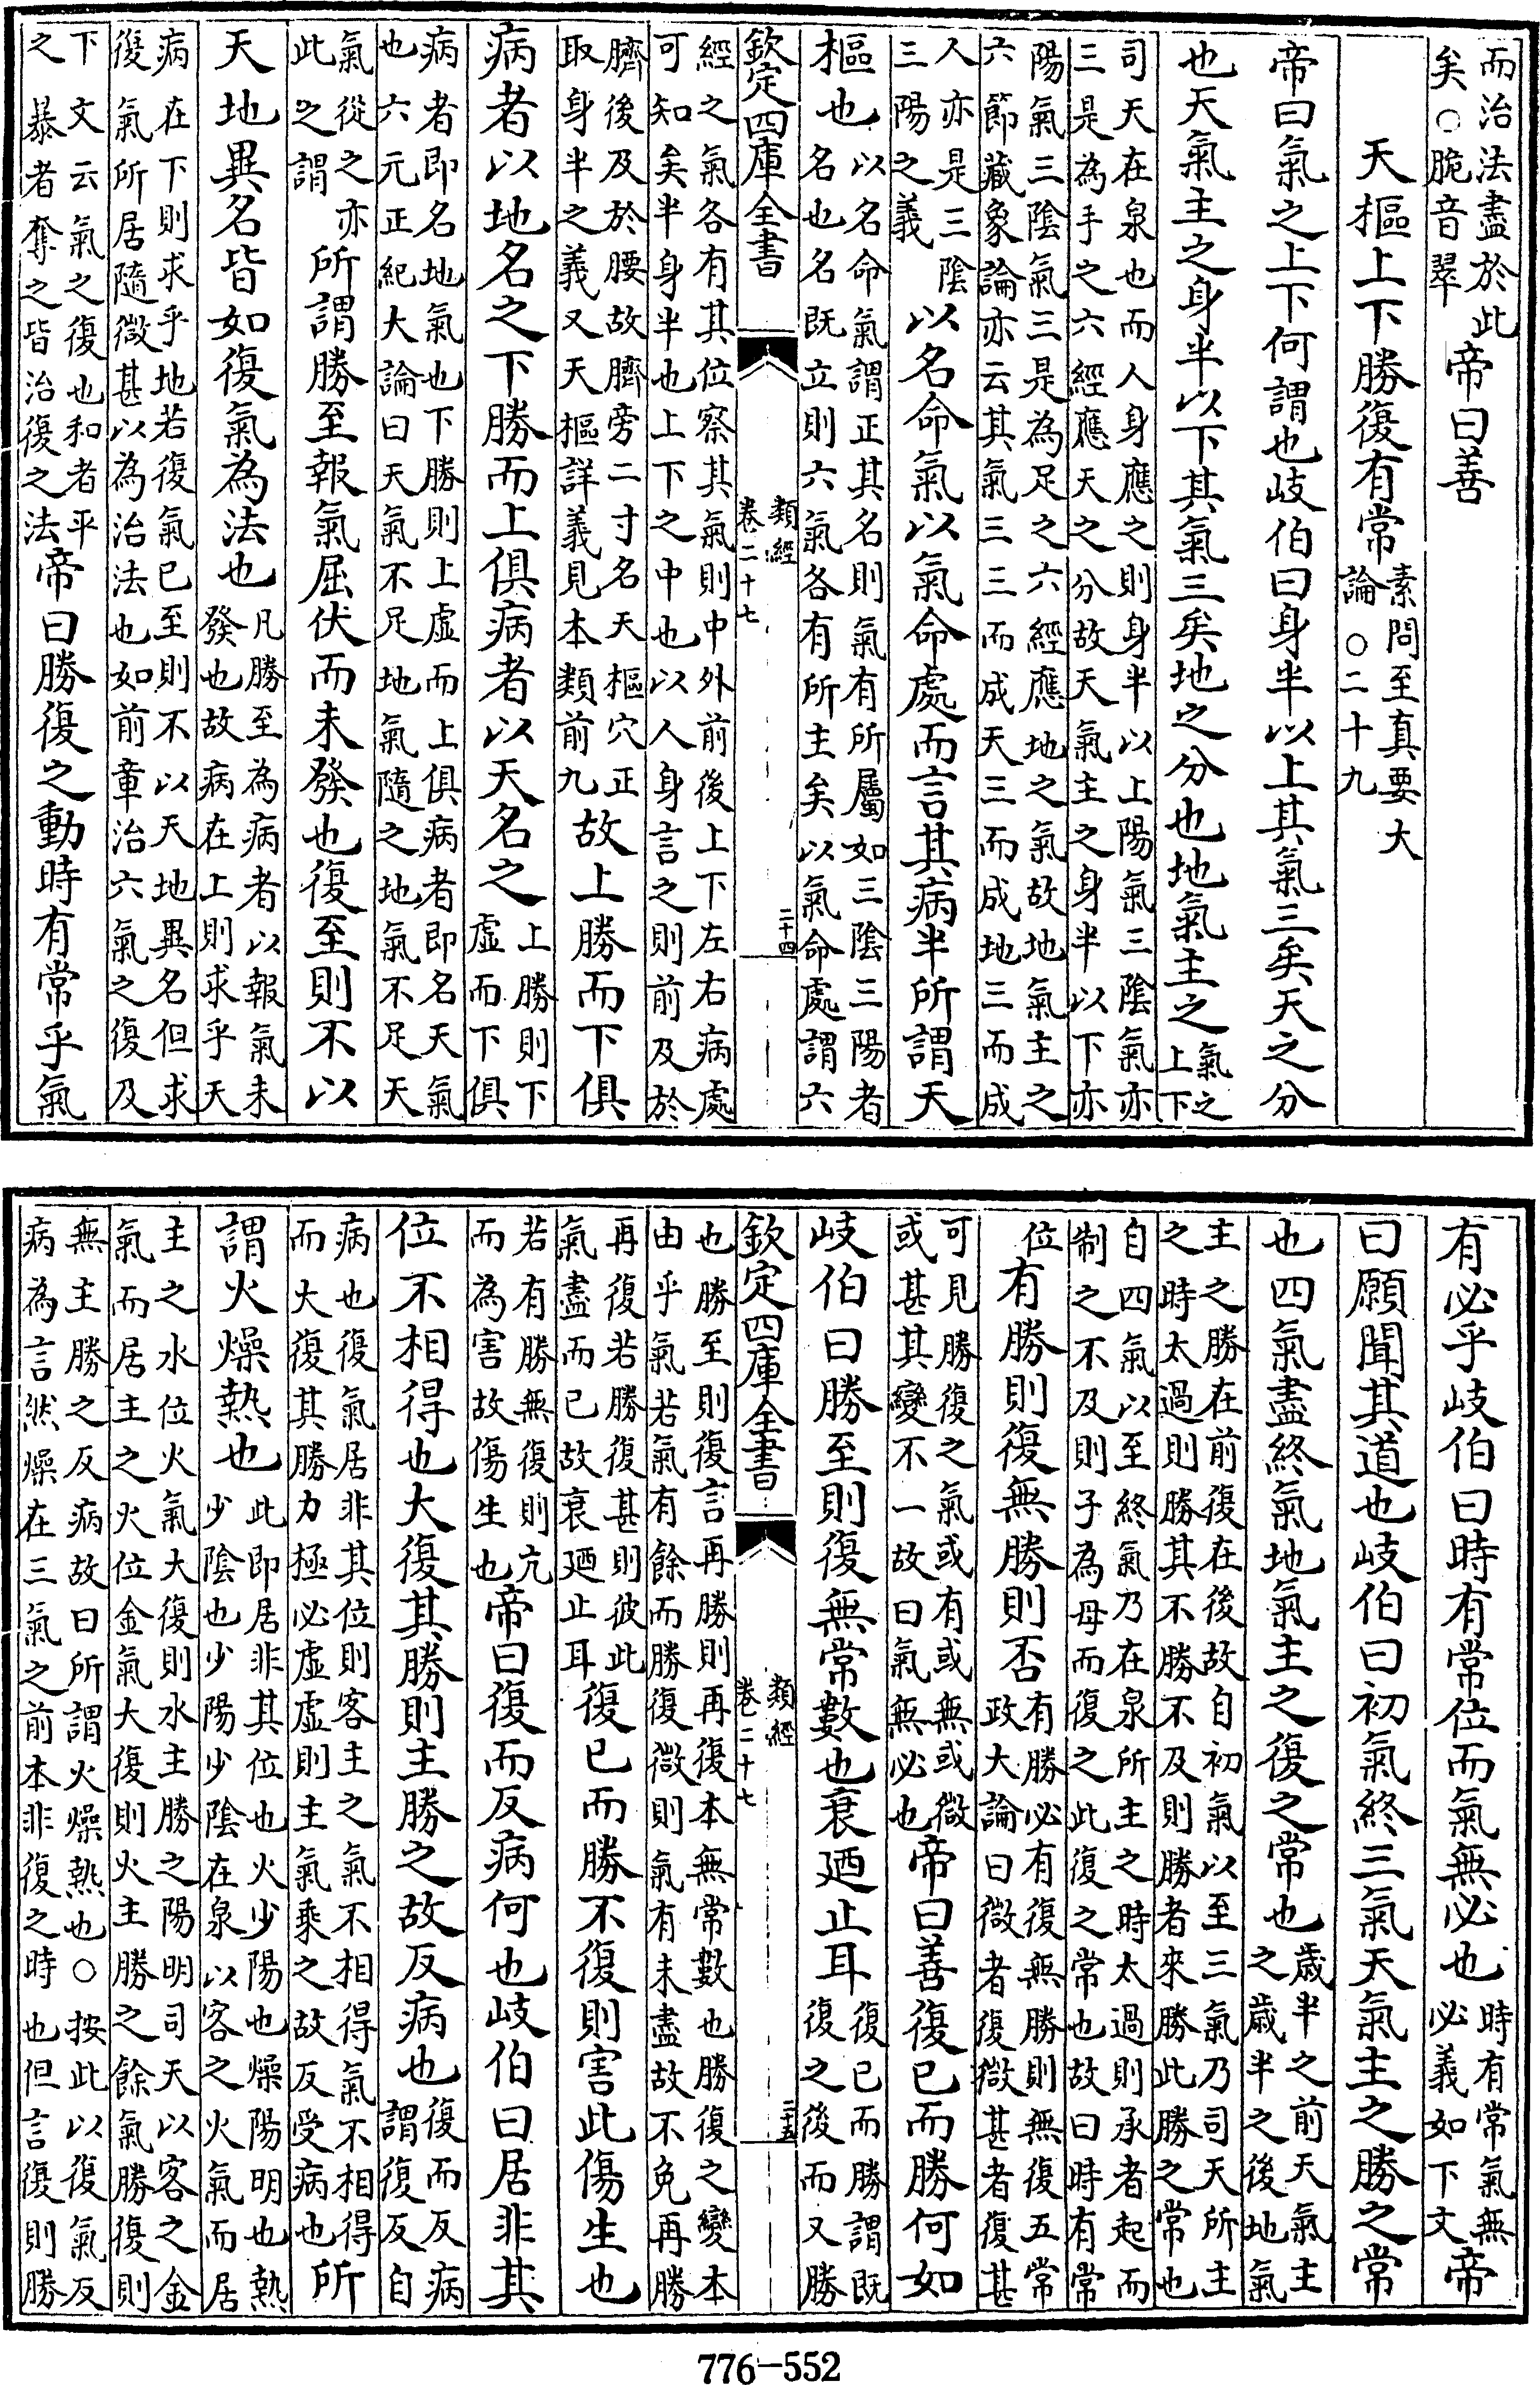 而治法盡於此矣○脆音翠帝曰善
天樞上下勝復有常素問至真要大論○二十九
帝曰氣之上下何謂也岐伯曰身半以上其氣三矣天之分
也天氣主之身半以下其氣三矣地之分也地氣主之氣之上下
司天在泉也而人身應之則身半以上陽氣三陰氣亦
三是為手之六經應天之分故天氣主之身半以下亦
陽氣三陰氣三是為足之六經應地之氣故地氣主之
六節藏象論亦云其氣三三而成天三而成地三而成
人亦是三陰三陽之義以名命氣以氣命處而言其病半所謂天
樞也以名命氣謂正其名則氣有所屬如三陰三陽者
名也名既立則六氣各有所主矣以氣命處謂六
欽定四庫全書 類經 卷二十七 二十四
經之氣各有其位察其氣則中外前後上下左右病處
可知矣半身半也上下之中也以人身言之則前及於
臍後及於腰故臍旁二寸名天樞穴正
取身半之義又天樞詳義見本類前九故上勝而下俱
病者以地名之下勝而上俱病者以天名之上勝則下虛而下俱
病者即名地氣也下勝則上虛而上俱病者即名天氣
也六元正紀大論曰天氣不足地氣隨之地氣不足天
氣從之亦此之謂所謂勝至報氣屈伏而未發也復至則不以
天地異名皆如復氣為法也凡勝至為病者以報氣未
發也故病在上則求乎天
病在下則求乎地若復氣已至則不以天地異名但求
復氣所居隨微甚以為治法也如前章治六氣之復及
下文云氣之復也和者平
之暴者奪之皆治復之法帝曰勝復之動時有常乎氣
有必乎岐伯曰時有常位而氣無必也時有常氣無必義如下文帝
曰願聞其道也岐伯曰初氣終三氣天氣主之勝之常
也四氣盡終氣地氣主之復之常也歲半之前天氣主之歲半之後地氣
主之勝在前復在後故自初氣以至三氣乃司天所主
之時太過則勝其不勝不及則勝者來勝此勝之常也
自四氣以至終氣乃在泉所主之時太過則承者起而
制之不及則子為母而復之此復之常也故曰時有常
位有勝則復無勝則否有勝必有復無勝則無復五常政大論曰微者復微甚者復甚
可見勝復之氣或有或無或微
或甚其變不一故曰氣無必也帝曰善復已而勝何如
岐伯曰勝至則復無常數也衰廼止耳復已而勝謂既復之後而又勝
欽定四庫全書 類經 卷二十七 二十五
也勝至則復言再勝則再復本無常數也勝復之變本
由乎氣若氣有餘而勝復微則氣有未盡故不免再勝
再復若勝復甚則彼此
氣盡而已故衰廼止耳復已而勝不復則害此傷生也
若有勝無復則亢
而為害故傷生也帝曰復而反病何也岐伯曰居非其
位不相得也大復其勝則主勝之故反病也復而反病謂復反自
病也復氣居非其位則客主之氣不相得氣不相得
而大復其勝力極必虛虛則主氣乘之故反受病也所
謂火燥熱也此即居非其位也火少陽也燥陽明也熱
少陰也少陽少陰在泉以客之火氣而居
主之水位火氣大復則水主勝之陽明司天以客之金
氣而居主之火位金氣大復則火主勝之餘氣勝復則
無主勝之反病故曰所謂火燥熱也○按此以復氣反
病為言然燥在三氣之前本非復之時也但言復則勝
776-552